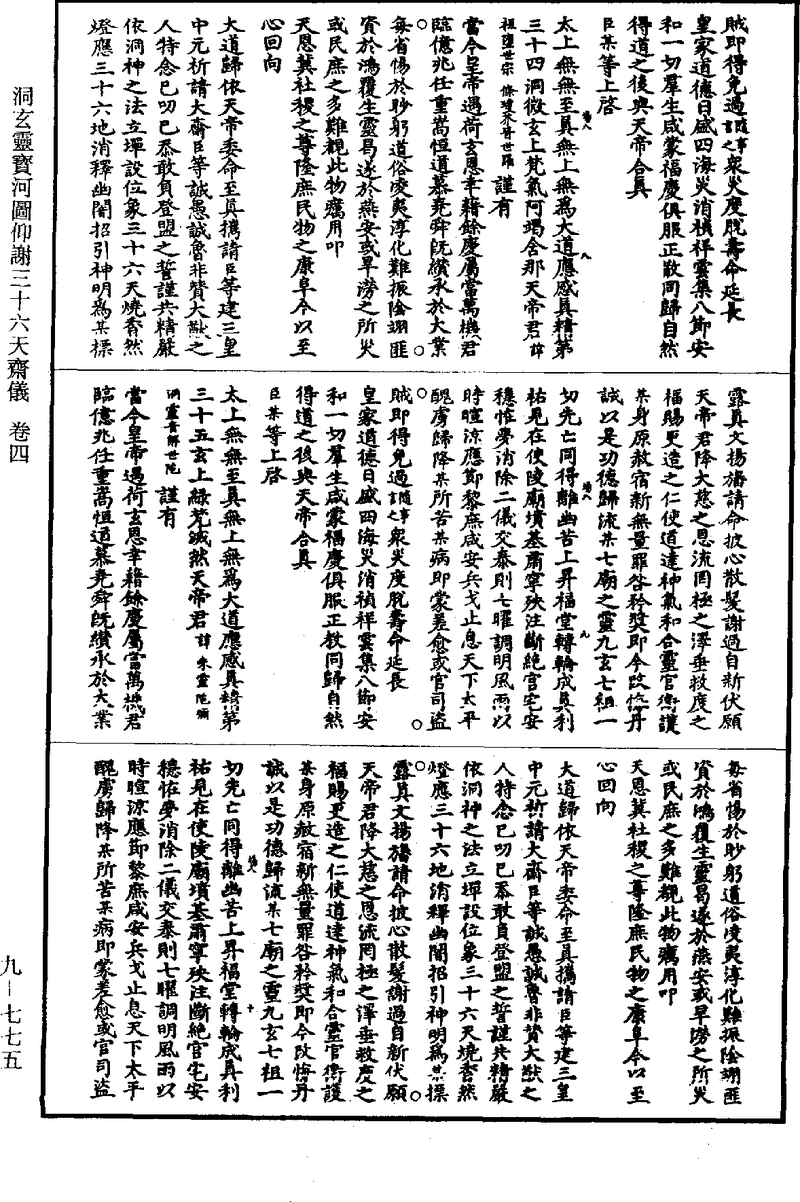 洞玄靈寶河圖仰謝三十六天齋儀　卷四
九－七七五
賊即得免過謂某事之衆災度脫壽命延長
皇家道德日盛四海災消禎祥雲集八節安
和一切羣生咸蒙福慶俱服正教同歸自然
得道之後與天帝合真
臣某等上啓
太上無無至真無上無爲大道應感真精第
三十四洞微玄上梵氣阿竭含那天帝君諱
謹有
當今皇帝遇荷玄恩幸藉餘慶屬當萬機君
臨億兆任重嵩恒道慕堯舜旣纘承於大業
每省惕於眇躬道俗凌夷淳化難振陰翊匪
資於鴻覆生靈曷遂於燕安或旱澇之所災
或民庶之多難覩此物癘用叩
天恩冀社稷之尊隆庶民物之康阜今以至
心回向
大道歸依天帝委命至真攜請臣等建三皇
中元祈請大齋臣等誠愚誠魯非贊大猷之
人特念已叨已忝敢負登盟之誓謹共精嚴
依洞神之法立壇設位象三十六天燒香然
燈應三十六地消釋幽闇招引神明爲某標
露真文揚旛請命披心散髮謝過自新伏願
天帝君降大慈之恩流罔極之澤垂救度之
福賜更造之仁使道達神氣和合靈官衞護
某身原赦宿新無量罪咎矜獎即今改悔丹
誠以是功德歸流某七廟之靈九玄七祖一
切先亡同得離幽苦上昇福堂轉輪成真利
祐見在使陵廟墳墓肅寧殃注斷絕宫宅安
穩怪夢消除二儀交泰則七曜調明風雨以
時暄涼應節黎庶咸安兵戈止息天下太平
醜虜歸降某所苦某病即蒙差愈或官司盜
賊即得免過謂某事之衆災度脫壽命延長
皇家道德日盛四海災消禎祥雲集八節安
和一切羣生咸蒙福慶俱服正教同歸自然
得道之後與天帝合真
臣某等上啓
太上無無至真無上無爲大道應感真精第
三十五玄上綠梵滅然天帝君諱
謹有
當今皇帝遇荷玄恩幸藉餘慶屬當萬機君
臨億兆任重嵩恒道慕堯舜旣纘承於大業
每省惕於眇躬道俗凌夷淳化難振陰翊匪
資於鴻覆生靈曷遂於燕安或旱澇之所災
或民庶之多難覩此物癘用叩
天恩冀社稷之尊隆庶民物之康阜今以至
心回向
大道歸依天帝委命至真攜請臣等建三皇
中元祈請大齋臣等誠愚誠魯非贊大猷之
人特念已叨已忝敢負登盟之誓謹共精嚴
依洞神之法立壇設位象三十六天燒香然
燈應三十六地消釋幽闇招引神明爲某標
露真文揚旛請命披心散髮謝過自新伏願
天帝君降大慈之恩流罔極之澤垂救度之
福賜更造之仁使道達神氣和合靈官衞護
某身原赦宿新無量罪咎矜獎即今改悔丹
誠以是功德歸流某七廟之靈九玄七祖一
切先亡同得離幽苦上昇福堂轉輪成真利
祐見在使陵廟墳墓肅寧殃注斷絕宫宅安
穩怪夢消除二儀交泰則七曜調明風雨以
時暄涼應節黎庶咸安兵戈止息天下太平
醜虜歸降某所苦某病即蒙差愈或官司盜